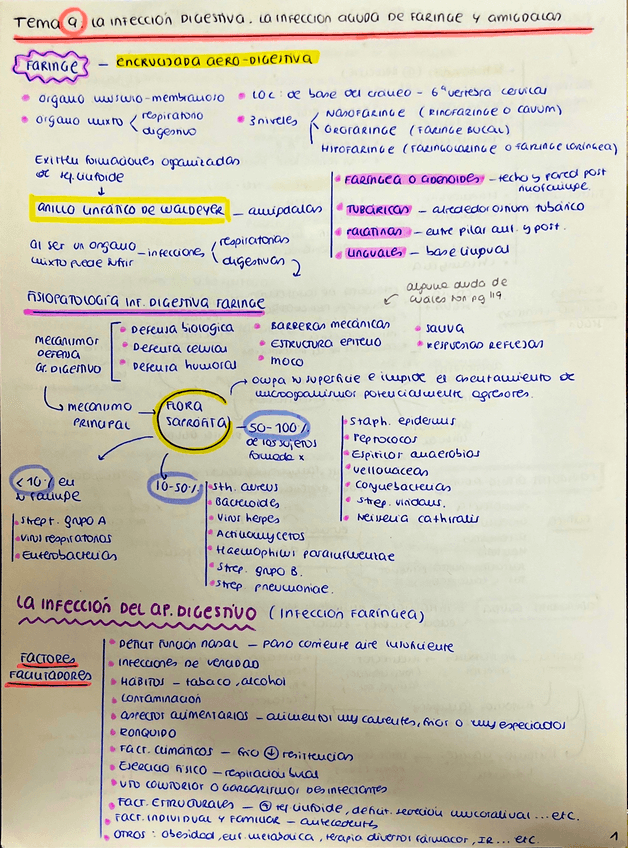 Tema 9. LA INFECCIÓN DIGESTIVA. LA INFECCION AGUDA DE FARINGE Y AMIGDALAS
FARINGE — ENCRUCIJADA AERO-DIGESTIVA
• órgano músculo-membranoso
• órgano mixto < respiratorio
digestivo
• LOC: de base del cráneo - 6ª vertebra cervical
• 3 niveles
NASOFARINGE (RINOFARINGE O CAVUM)
OROFARINGE (FARINGE BUCAL)
HIPOFARINGE (FARINGOLARINGE O FARINGE LARINGEA)
Existen formaciones organizadas
de tej. linfoide
ANILLO LINFÁTICO DE WALDEYER — amígdalas
• FARÍNGEA O ADENOIDES — techo y pared post
nasofaringe.
• TUBÁRICAS — alrededor ostium tubárico
• PALATINAS — entre pilar ant. y post.
• LINGUALES — base lingual
Al ser un organo
mixto puede sufrir
— infecciones
respiratorias
digestivas
FISIOPATOLOGÍA INF. DIGESTIVA FARINGE
alguna duda de
cuales son pg 119.
MECANISMOS
DEFENSA
AP. DIGESTIVO
• Defensa biologica
• Defensa celular
• Defensa humoral
• BARRERAS MECÁNICAS
• ESTRUCTURA EPITELIO
• MOCO
• SALIVA
• RESPUESTAS REFLEJAS
MECANISMO
PRINCIPAL
FLORA
SAPROFITA
ocupa la superficie e impide el asentamiento de
microorganismos potencialmente agresores.
50-100%
de los sujetos
formada x
• Staph. epidermis
• Peptococos
• Espirilos anaerobios
• Veilloneaceas
• Corynebacterias
• Strep. viridans.
• Neisseria catarralis
<10% en
la faringe
• Strept. grupo A
• Virus respiratorios
• Enterobacterias
10-50%
• Sth. aureus
• Bacteroides
• Virus herpes
• Actinomycetos
• Haemophilus parainfluentiae
• Strep. grupo B.
• Strep pneumoniae.
LA INFECCIÓN DEL AP. DIGESTIVO (INFECCION FARÍNGEA)
FACTORES
FACILITADORES
• DÉFICIT FUNCIÓN NASAL — paso corriente aire insuficiente
• INFECCIONES DE VECINDAD
• HÁBITOS — tabaco, alcohol
• CONTAMINACIÓN
• ASPECTOS ALIMENTARIOS — alimentos muy calientes, frios o muy especiados
• RONQUIDO
• FACT. CLIMÁTICOS — frio ↓ resistencias
• EJERCICIO FISICO — respiración bucal
• USO COLUTORIO O GARGARISMOS DESINFECTANTES
• FACT. ESTRUCTURALES — tej linfoide, deficit. secreción mucosalival ... etc.
• FACT. INDIVIDUAL Y FAMILIAR — antecedentes
• OTROS: obesidad, enf. metabolica, terapia diversos farmacos, IR ... etc.
1